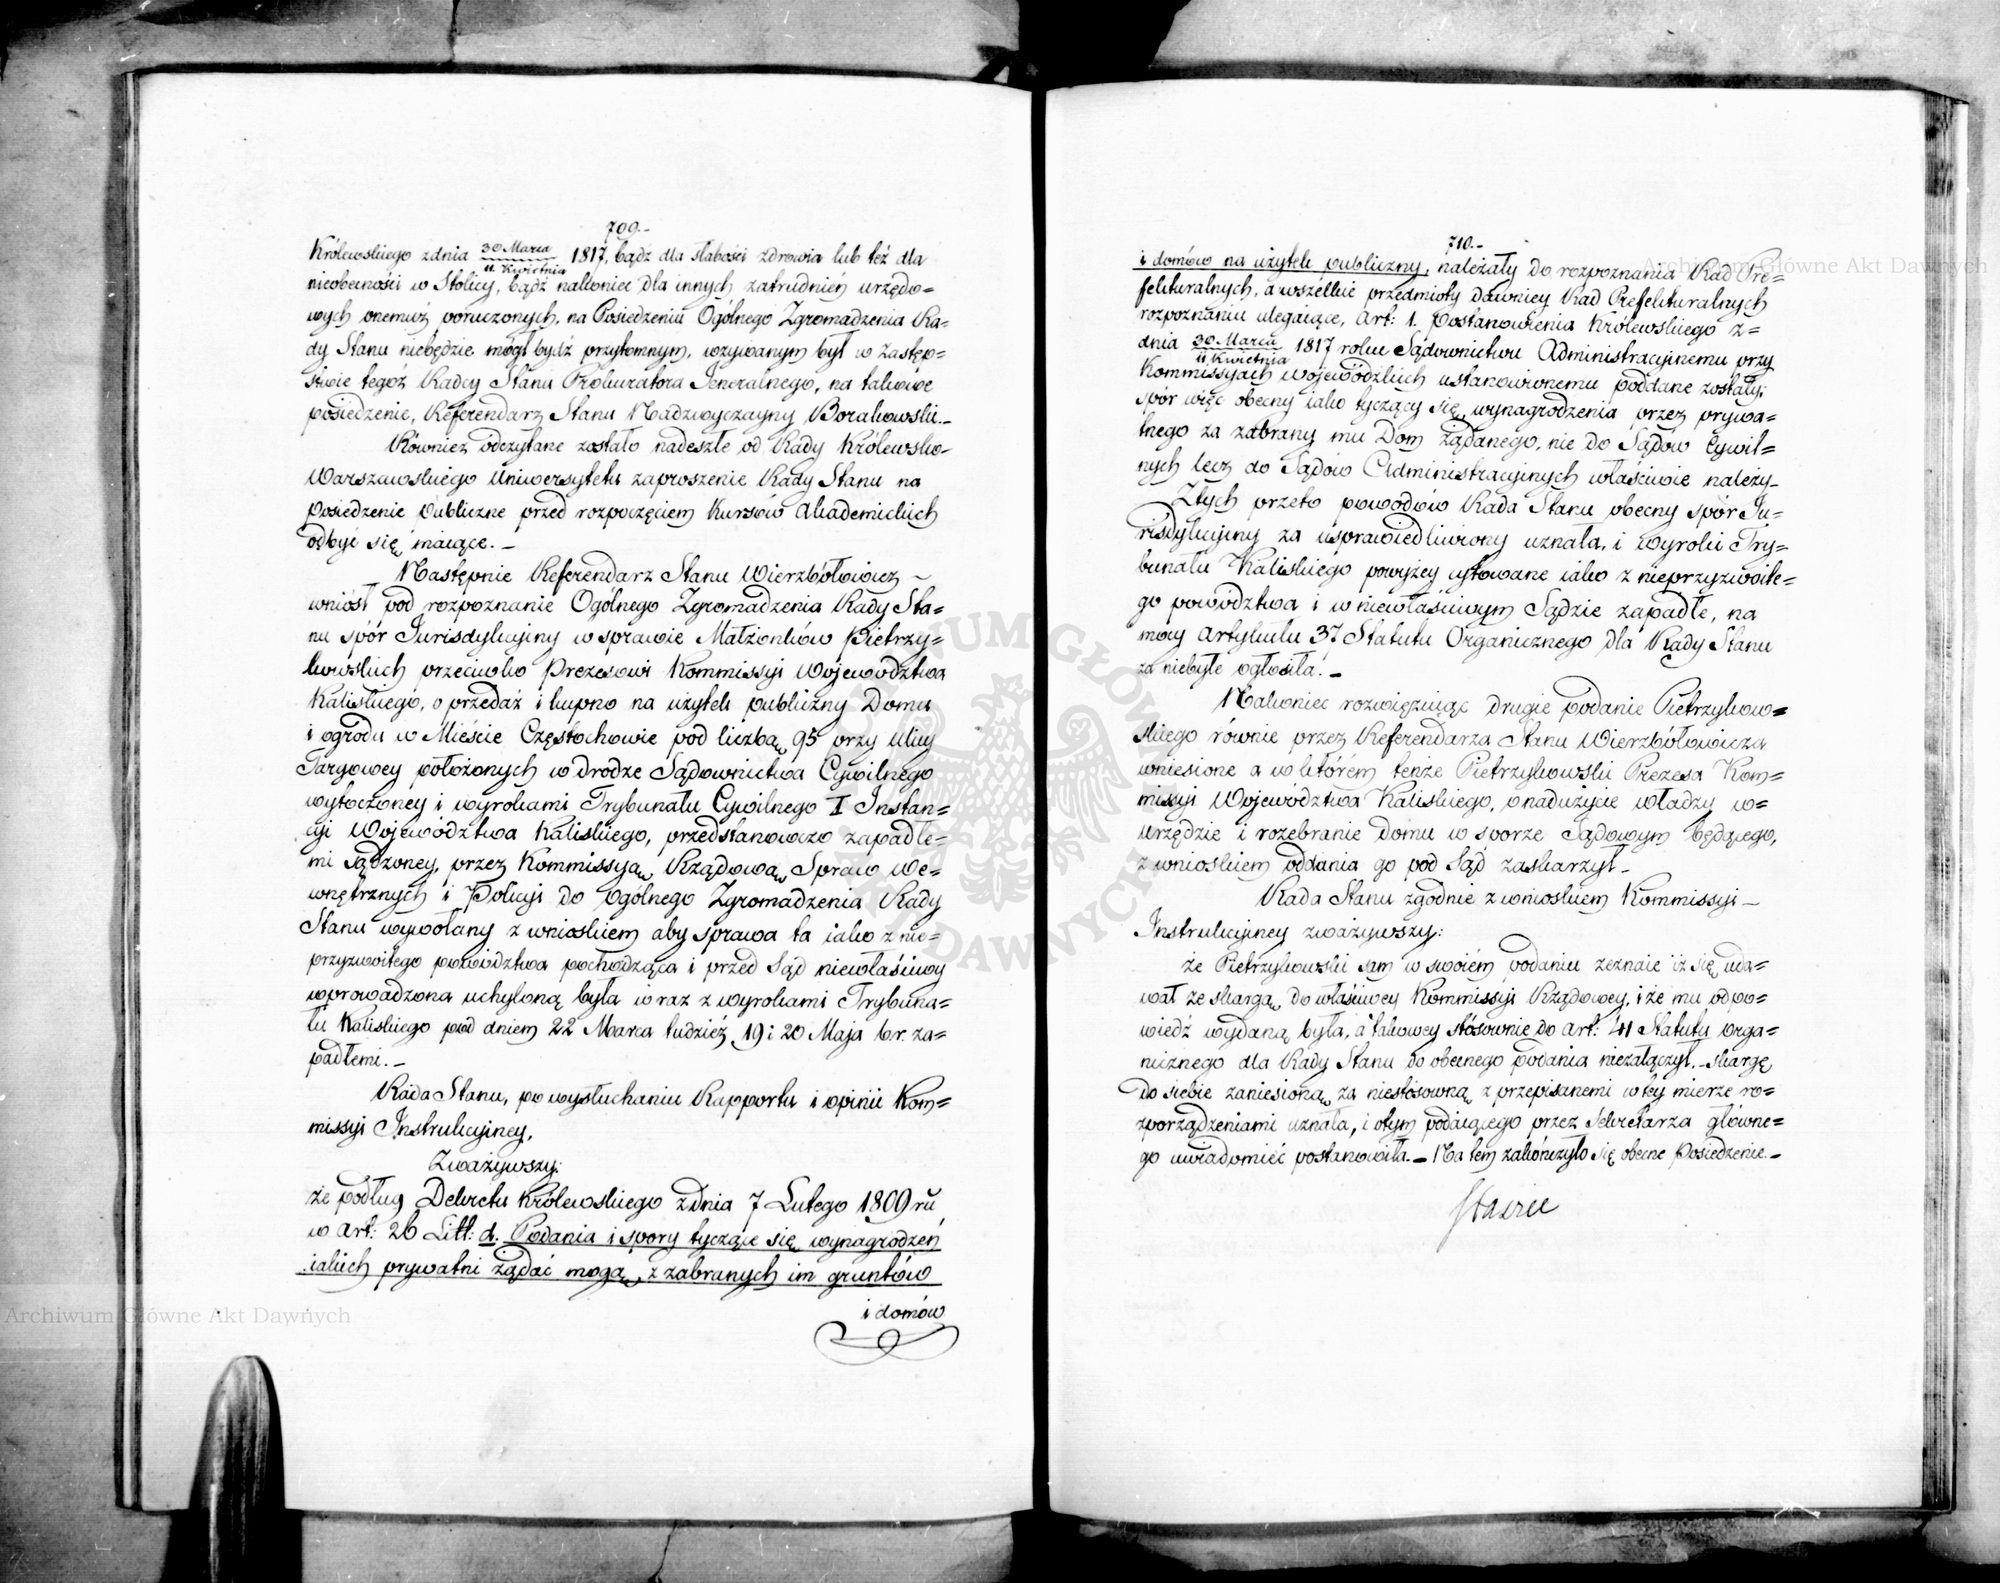 709.-
Królewskiego z dnia 30 Marca / 11 Kwietnia 1817, bądź dla słabości zdrowia lub też dla
nieobecności w Stolicy, bądź nakoniec dla innych zatrudnień urzędo=
wych onemuż poruczonych, na Posiedzeniu Ogólnego Zgromadzenia Ra=
dy Stanu niebędzie mógł bydź przytomnym, wzywanym był w zastęp=
stwie tegoż Radcy Stanu Prokuratora Jeneralnego, na takowe
posiedzenie, Referendarz Stanu Nadzwyczayny Borakowski.-
Również odczytane zostało nadeszłe od Rady Królewsko-
Warszawskiego Uniwersytetu zaproszenie Rady Stanu na
posiedzenie publiczne przed rozpoczęciem Kursów Akademickich
odbyć się maiące.-
Następnie Referendarz Stanu Wierzbołowicz ~
wniósł pod rozpoznanie Ogólnego Zgromadzenia Rady Sta=
nu spór Jurisdykcyiny w sprawie Małżonków Pietrzy=
kowskich przeciwko Prezesowi Kommissyi Województwa
Kaliskiego, o przedaż i kupno na użytek publiczny Domu
i ogrodu w Mieście Częstochowie pod liczbą 95 przy ulicy
Targowey położonych w drodze Sądownictwa Cywilnego
wytoczoney i wyrokami Trybunału Cywilnego I Instan=
cyi Województwa Kaliskiego, przedstanowczo zapadłe=
mi sądzoney, przez Kommissyą Rządową Spraw We=
wnętrznych i Policyi do Ogólnego Zgromadzenia Rady
Stanu wywołany z wnioskiem aby sprawa ta iako z nie=
przyzwoitego powództwa pochodząca i przed Sąd niewłaściwy
wprowadzona uchyloną była wraz z wyrokami Trybuna=
łu Kaliskiego pod dniem 22 Marca tudzież 19 i 20 Maja b.r. za=
padłemi.-
Rada Stanu, po wysłuchaniu Rapportu i opinii Kom=
missyi Instrukcyiney,
Zważywszy:
że podług Dekretu Królewskiego z dnia 7 Lutego 1809 ru
w Art: 26 Litt: d. Podania i spory tyczące się wynagrodzeń
iakich prywatni żądać mogą, z zabranych im gruntów
i domów
710.-
i domów na użytek publiczny, należały do rozpoznania Rad Pre=
fekturalnych, a wszelkie przedmioty dawniey Rad Prefekturalnych
rozpoznaniu ulegaiące, Art: 1. Postanowienia Królewskiego z=
dnia 30 Marca / 11 Kwietnia 1817 roku Sądownictwu Administracyinemu przy
Kommissyach wojewódzkich ustanowionemu poddane zostały;
spór więc obecny iako tyczący się wynagrodzenia przez prywa=
tnego za zabrany mu Dom żądanego, nie do Sądów Cywil=
nych lecz do Sądów Administracyinych właściwie należy.
Ztych przeto powodów Rada Stanu obecny spór Ju=
risdykcyiny za usprawiedliwiony uznała, i wyroki Try=
bunału Kaliskiego powyżey cytowane iako z nieprzyzwoite=
go powództwa i w niewłaściwym Sądzie zapadłe, na
mocy Artykułu 37 Statutu Organicznego dla Rady Stanu
za niebyłe ogłosiła.-
Nakoniec rozwięzuiąc drugie podanie Pietrzykow=
skiego równie przez Referendarza Stanu Wierzbołowicza
wniesione a w którém tenże Pietrzykowski Prezesa Kom=
missyi Województwa Kaliskiego, o nadużycie władzy w=
urzędzie i rozebranie domu w sporze Sądowym będącego,
z wnioskiem oddania go pod Sąd zaskarzył.-
Rada Stanu zgodnie z wnioskiem Kommissyi -
Instrukcyiney zważywszy:
że Pietrzykowski sam w swoiém podaniu zeznaie iż się uda=
wał ze skargą do właściwey Kommissyi Rządowey, i że mu odpo=
wiedź wydaną była, a takowey stósownie do Art: 41 Statutu orga=
nicznego dla Rady Stanu do obecnego podania niezałączył,- skargę
do siebie zaniesioną za niestósowną z przepisanemi w tey mierze ro=
zporządzeniami uznała, i o tym podaiącego przez Sekretarza główne=
go uwiadomić postanowiła.- Na tem zakończyło się obecne Posiedzenie.-
Staszic
Archiwum Główne Akt Dawnych
Archiwum Główne Akt Dawnych
ARCHIWUM GŁÓWNE AKT DAWNYCH